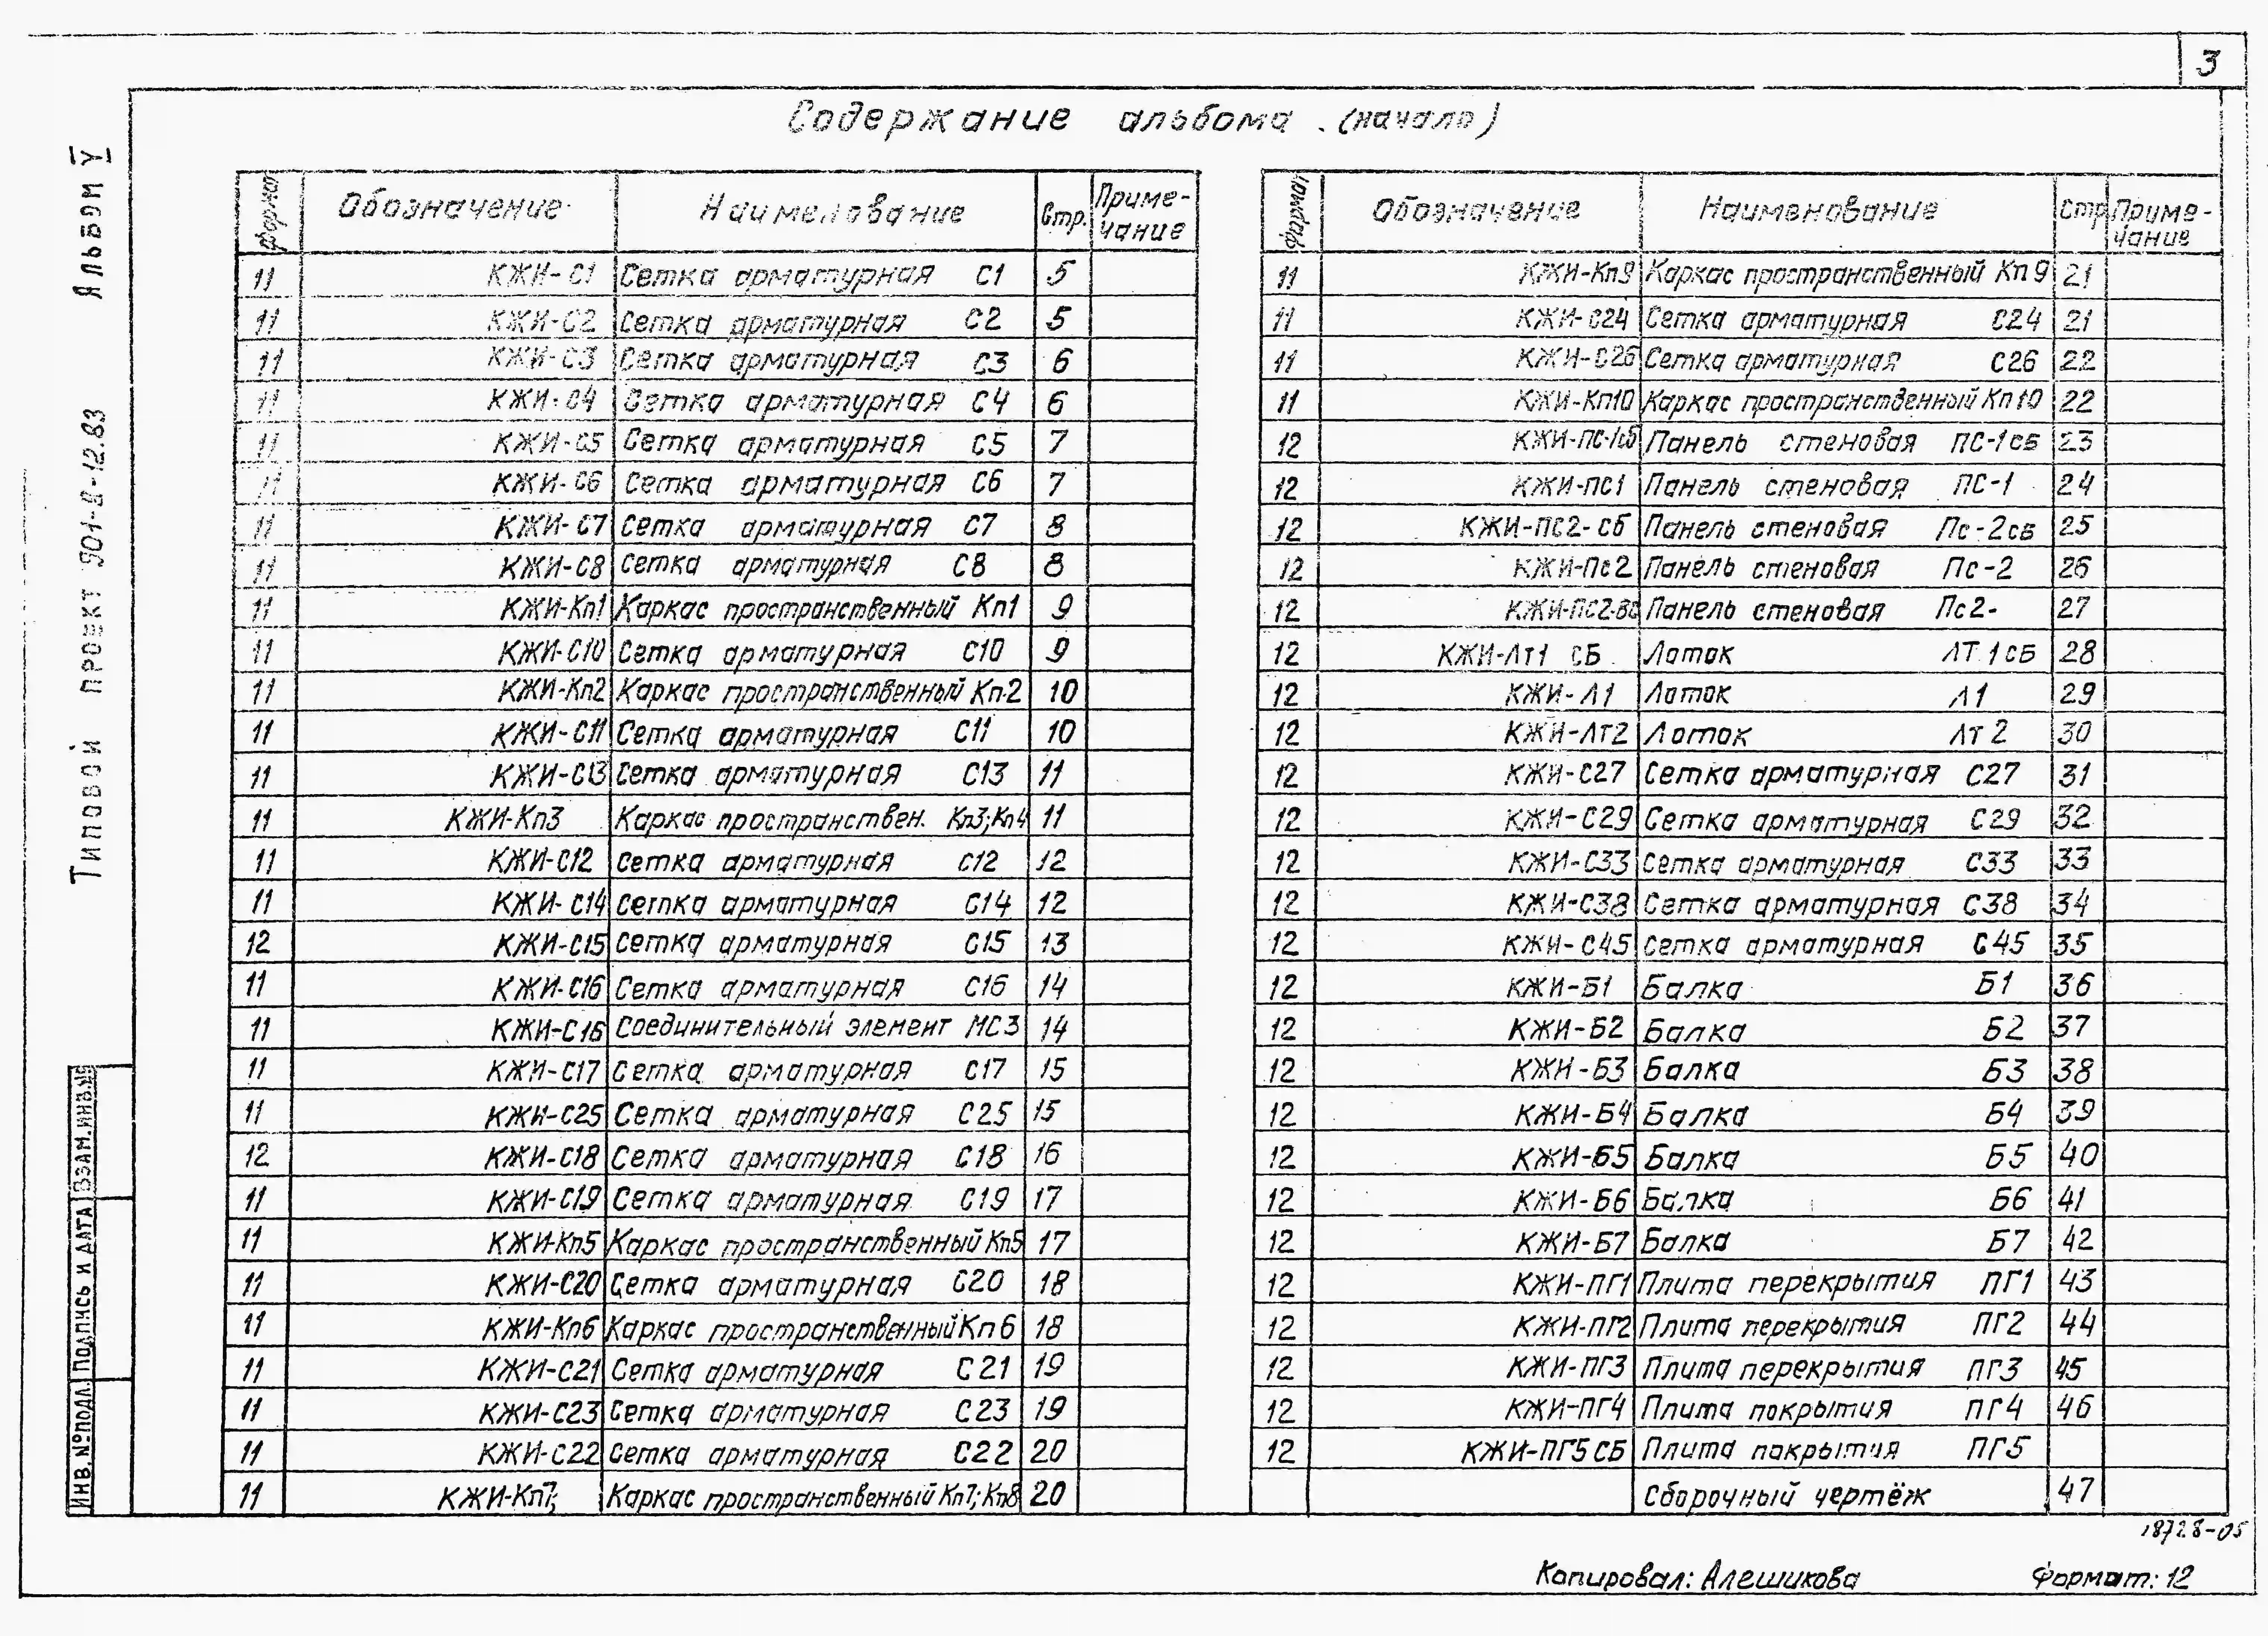 3
Содержание альбома. (начало)
Альбом V
Типовой проект 901-8-12.83
Формат Обозначение Наименование Стр. Примечание
11 КЖИ-С1 Сетка арматурная С1 5
11 КЖИ-С2 Сетка арматурная С2 5
11 КЖИ-С3 Сетка арматурная С3 6
11 КЖИ-С4 Сетка арматурная С4 6
11 КЖИ-С5 Сетка арматурная С5 7
11 КЖИ-С6 Сетка арматурная С6 7
11 КЖИ-С7 Сетка арматурная С7 8
11 КЖИ-С8 Сетка арматурная С8 8
11 КЖИ-Кп1 Каркас пространственный Кп1 9
11 КЖИ-С10 Сетка арматурная С10 9
11 КЖИ-Кп2 Каркас пространственный Кп-2 10
11 КЖИ-С11 Сетка арматурная С11 10
11 КЖИ-С13 Сетка арматурная С13 11
11 КЖИ-Кп3 Каркас пространствен. Кп3;Кп4 11
11 КЖИ-С12 Сетка арматурная С12 12
11 КЖИ-С14 Сетка арматурная С14 12
12 КЖИ-С15 Сетка арматурная С15 13
11 КЖИ-С16 Сетка арматурная С16 14
11 КЖИ-С16 Соединительный элемент МС3 14
11 КЖИ-С17 Сетка арматурная С17 15
11 КЖИ-С25 Сетка арматурная С25 15
12 КЖИ-С18 Сетка арматурная С18 16
11 КЖИ-С19 Сетка арматурная С19 17
11 КЖИ-Кп5 Каркас пространственный Кп5 17
11 КЖИ-С20 Сетка арматурная С20 18
11 КЖИ-Кп6 Каркас пространственный Кп6 18
11 КЖИ-С21 Сетка арматурная С21 19
11 КЖИ-С23 Сетка арматурная С23 19
11 КЖИ-С22 Сетка арматурная С22 20
11 КЖИ-Кп7; Каркас пространственный Кп7;Кп8 20
Формат Обозначение Наименование Стр Примечание
11 КЖИ-Кп9 Каркас пространственный Кп9 21
11 КЖИ-С24 Сетка арматурная С24 21
11 КЖИ-С26 Сетка арматурная С26 22
11 КЖИ-Кп10 Каркас пространственный Кп10 22
12 КЖИ-ПС-1сб Панель стеновая ПС-1сб 23
12 КЖИ-ПС1 Панель стеновая ПС-1 24
12 КЖИ-ПС2-Сб Панель стеновая Пс-2сб 25
12 КЖИ-Пс2 Панель стеновая Пс-2 26
12 Панель стеновая Пс2- 27
12 КЖИ-Лт1 СБ Лоток ЛТ1сб 28
12 КЖИ-Л1 Лоток Л1 29
12 КЖИ-Лт2 Лоток Лт2 30
12 КЖИ-С27 Сетка арматурная С27 31
12 КЖИ-С29 Сетка арматурная С29 32
12 КЖИ-С33 Сетка арматурная С33 33
12 КЖИ-С38 Сетка арматурная С38 34
12 КЖИ-С45 Сетка арматурная С45 35
12 КЖИ-Б1 Балка Б1 36
12 КЖИ-Б2 Балка Б2 37
12 КЖИ-Б3 Балка Б3 38
12 КЖИ-Б4 Балка Б4 39
12 КЖИ-Б5 Балка Б5 40
12 КЖИ-Б6 Балка Б6 41
12 КЖИ-Б7 Балка Б7 42
12 КЖИ-ПГ1 Плита перекрытия ПГ1 43
12 КЖИ-ПГ2 Плита перекрытия ПГ2 44
12 КЖИ-ПГ3 Плита перекрытия ПГ3 45
12 КЖИ-ПГ4 Плита покрытия ПГ4 46
12 КЖИ-ПГ5СБ Плита покрытия ПГ5
Сборочный чертёж 47
ИНВ.№ПОДЛ. ПОДПИСЬ И ДАТА ВЗАМ.ИНВ.№
18728-05
Копировал: Алешикова Формат: 12